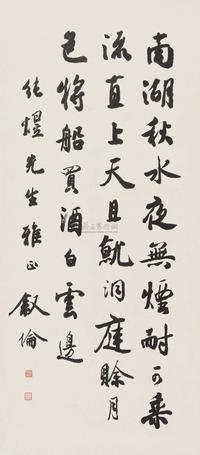 南湖秋水夜無煙耐可乘
流直上天且就洞庭賒月
色將船買酒白雲邊
純煜先生雅正 叙倫